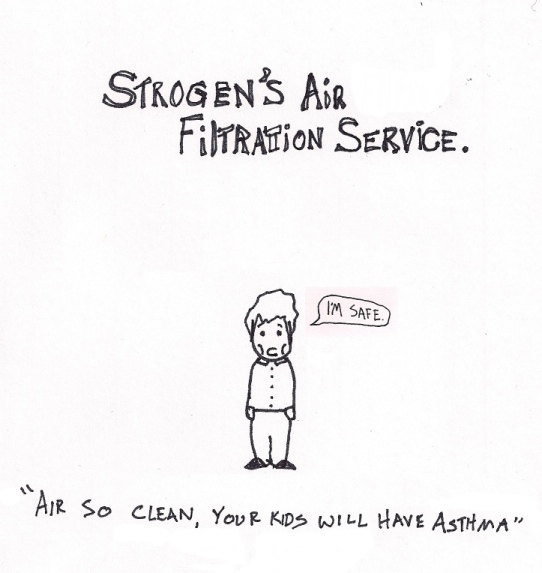 STROGEN'S AIR
FILTRATION SERVICE.
I'M SAFE.
"AIR SO CLEAN, YOUR KIDS WILL HAVE ASTHMA"